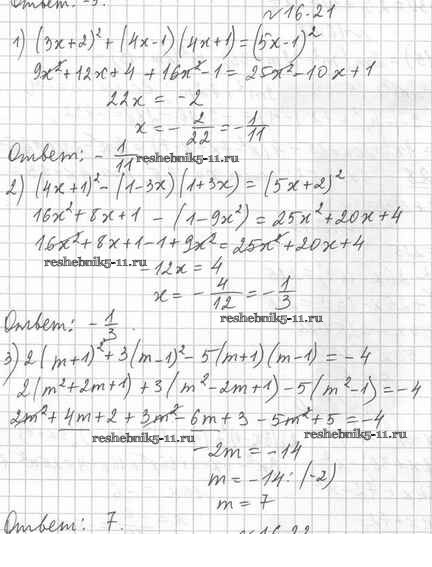 Ответ: -3.
№16.21
1) (3x+2)²+(4x-1)(4x+1)=(5x-1)²
9x²+12x+4+16x²-1=25x²-10x+1
22x=-2
x=-2/22=-1/11
Ответ: -1/11
reshebnik5-11.ru
2) (4x+1)²-(1-3x)(1+3x)=(5x+2)²
16x²+8x+1-(1-9x²)=25x²+20x+4
16x²+8x+1-1+9x²=25x²+20x+4
reshebnik5-11.ru
-12x=4
x=-4/12=-1/3
reshebnik5-11.ru
Ответ: -1/3.
3) 2(m+1)²+3(m-1)²-5(m+1)(m-1)=-4
2(m²+2m+1)+3(m²-2m+1)-5(m²-1)=-4
2m²+4m+2+3m²-6m+3-5m²+5=-4
reshebnik5-11.ru reshebnik5-11.ru
-2m=-14
m=-14:(-2)
m=7
Ответ: 7.
№16.22